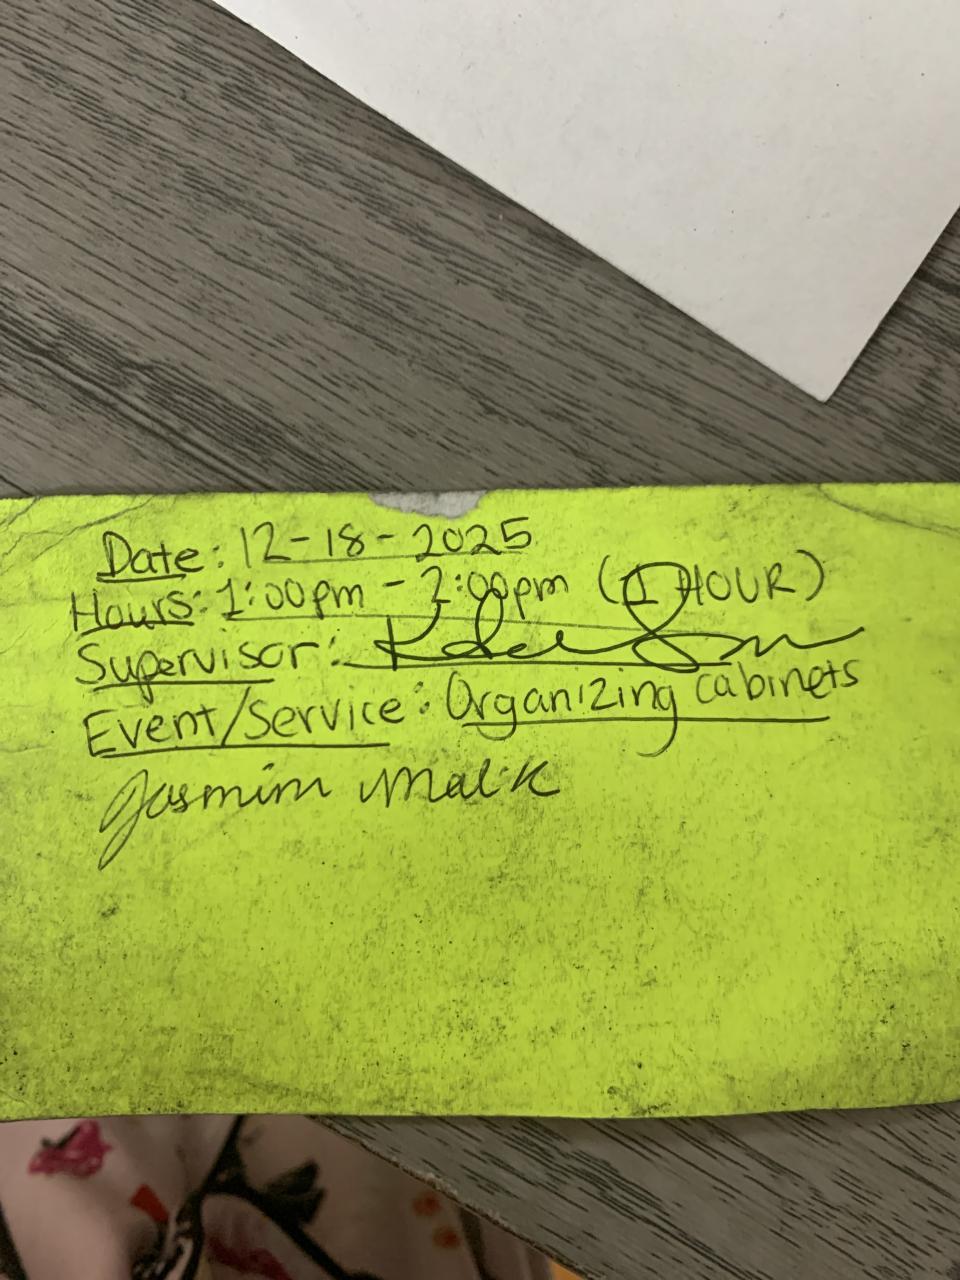 Date: 12-18-2025
Hours: 1:00pm - 2:00pm (1 HOUR)
Supervisor:
Event/Service: Organizing cabinets
Jasmim Malik